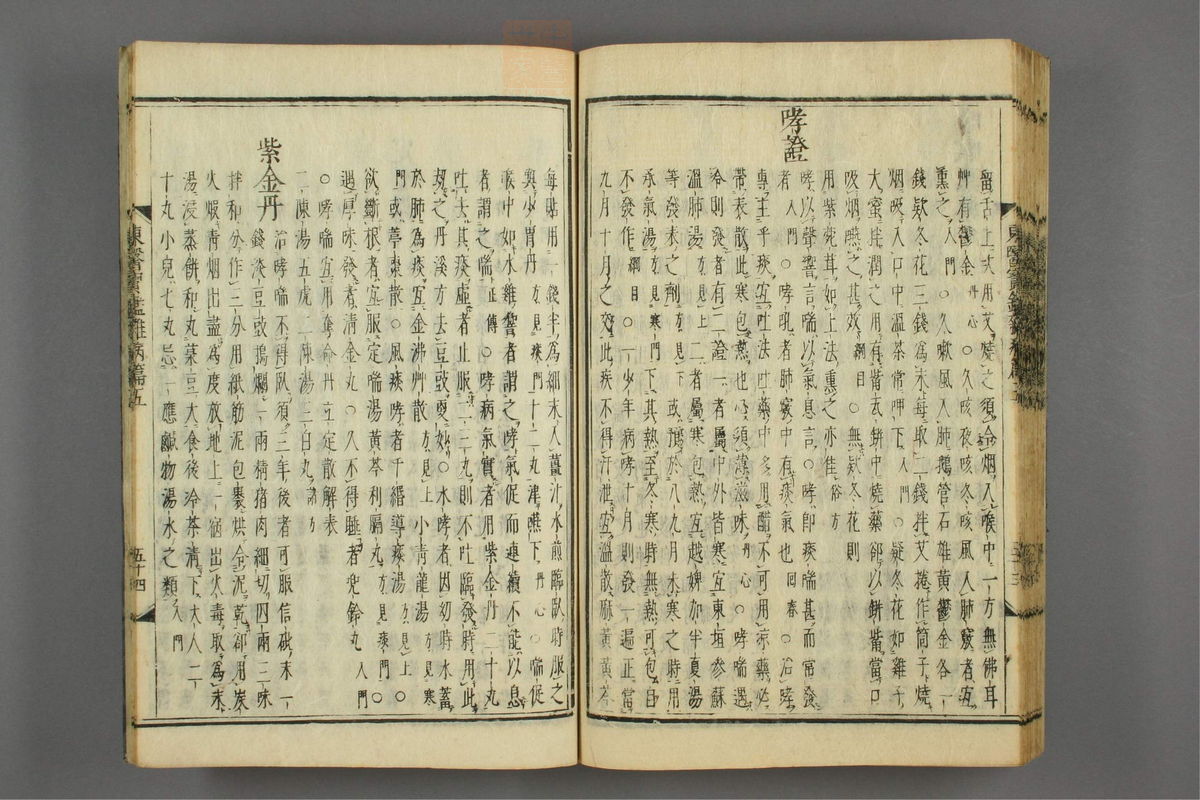 留舌上次用艾燒之須令烟入喉中一方無佛耳
艸有鬱金丹心○久咳夜咳冬咳風入肺竅者宜
熏之入門○久嗽風入肺鵝管石雄黃鬱金各一
錢欵冬花三錢爲末每取二錢拌艾捲作筒子燒
烟吸入口中溫茶常呷下入門○疑冬花如雞子
大蜜拌潤之用有觜瓦缾中燒藥卻以缾觜當口
吸烟嚥之甚效綱目○無欵冬花則
用紫菀茸如上法熏之亦佳俗方
哮證
哮以聲響言喘以氣息言○哮卽痰喘甚而常發
者入門○哮吼者肺竅中有痰氣也回春○治哮
專主乎痰宜吐法吐藥中多用醋不可用凉藥必
帶表散此寒包熱也必須薄滋味丹心○哮喘遇
冷則發者有二證一者屬中外皆寒宜東垣參蘇
溫肺湯方見上二者屬寒包熱宜越婢加半夏湯
等發表之劑方見下或預於八九月未寒之時用
承氣湯方見寒門下其熱至冬寒時無熱可包自
不發作綱目○一少年病哮十月則發一遍正當
九月十月之交此疾不得汗泄宜溫散麻黃黃芩
每貼用一錢半爲細末入薑汁水煎臨臥時服之
與小胃丹方見痰門十二丸津嚥下丹心○喘促
喉中如水雞聲者謂之哮氣促而連續不能以息
者謂之喘正傳○哮病氣實者用紫金丹二十丸
吐去其痰虛者止服二三丸則不吐臨發時用此
劫之丹溪方去豆豉更妙○水哮者因幼時水蓄
於肺爲痰宜金沸艸散方見上小靑龍湯方見寒
門或葶棗散○風痰哮者千緡導痰湯方見上○
欲斷根者宜服定喘湯黃芩利膈丸方見痰門○
遇厚味發者淸金丸○久不得睡者兜鈴丸入門
○哮喘宜用奪命丹立定散解表
二陳湯五虎二陳湯三白丸諸方
紫金丹
治哮喘不得臥須三年後者可服信砒末一
錢淡豆豉搗爛一兩精猪肉細切四兩三味
拌和分作三分用紙筋泥包裹烘令泥乾却用炭
火煅靑烟出盡爲度放地上一宿出火毒取爲末
湯浸蒸餠和丸菉豆大食後冷茶淸下大人二
十丸小兒七丸忌一應鹹物湯水之類入門
東醫寶鑑雜病篇五
五十四